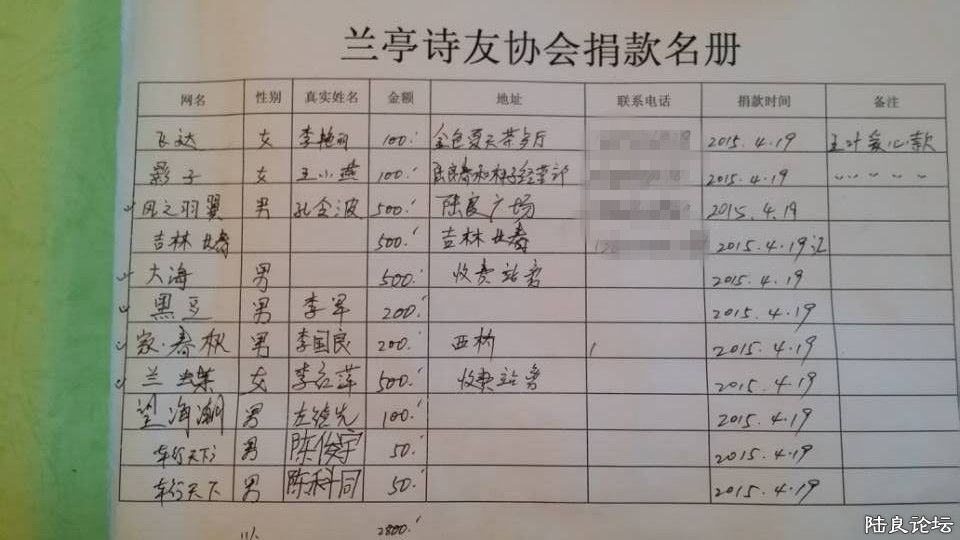 兰亭诗友协会捐款名册
网名 性别 真实姓名 金额 地址 联系电话 捐款时间 备注
飞达 女 李艳 100. 金色夏天茶餐厅 2015.4.19 爱心款
影子 女 王小燕 100. 经营部 2015.4.19 〃 〃 〃 〃
风之羽翼 男 孔令波 500. 陆良广场 2015.4.19
吉林 500. 吉林 2015.4.19汇
大海 男 500. 收费站旁 2015.4.19
黑豆 男 李军 200. 2015.4.19
家·春秋 男 李国良 200. 西桥 2015.4.19
兰蝶 女 李红萍 500. 收费站旁 2015.4.19
望海潮 男 左德先 100. 2015.4.19
车行天下 男 陈俊宇 50. 2015.4.19
车行天下 男 陈科同 50. 2015.4.19
2800.
陆良论坛